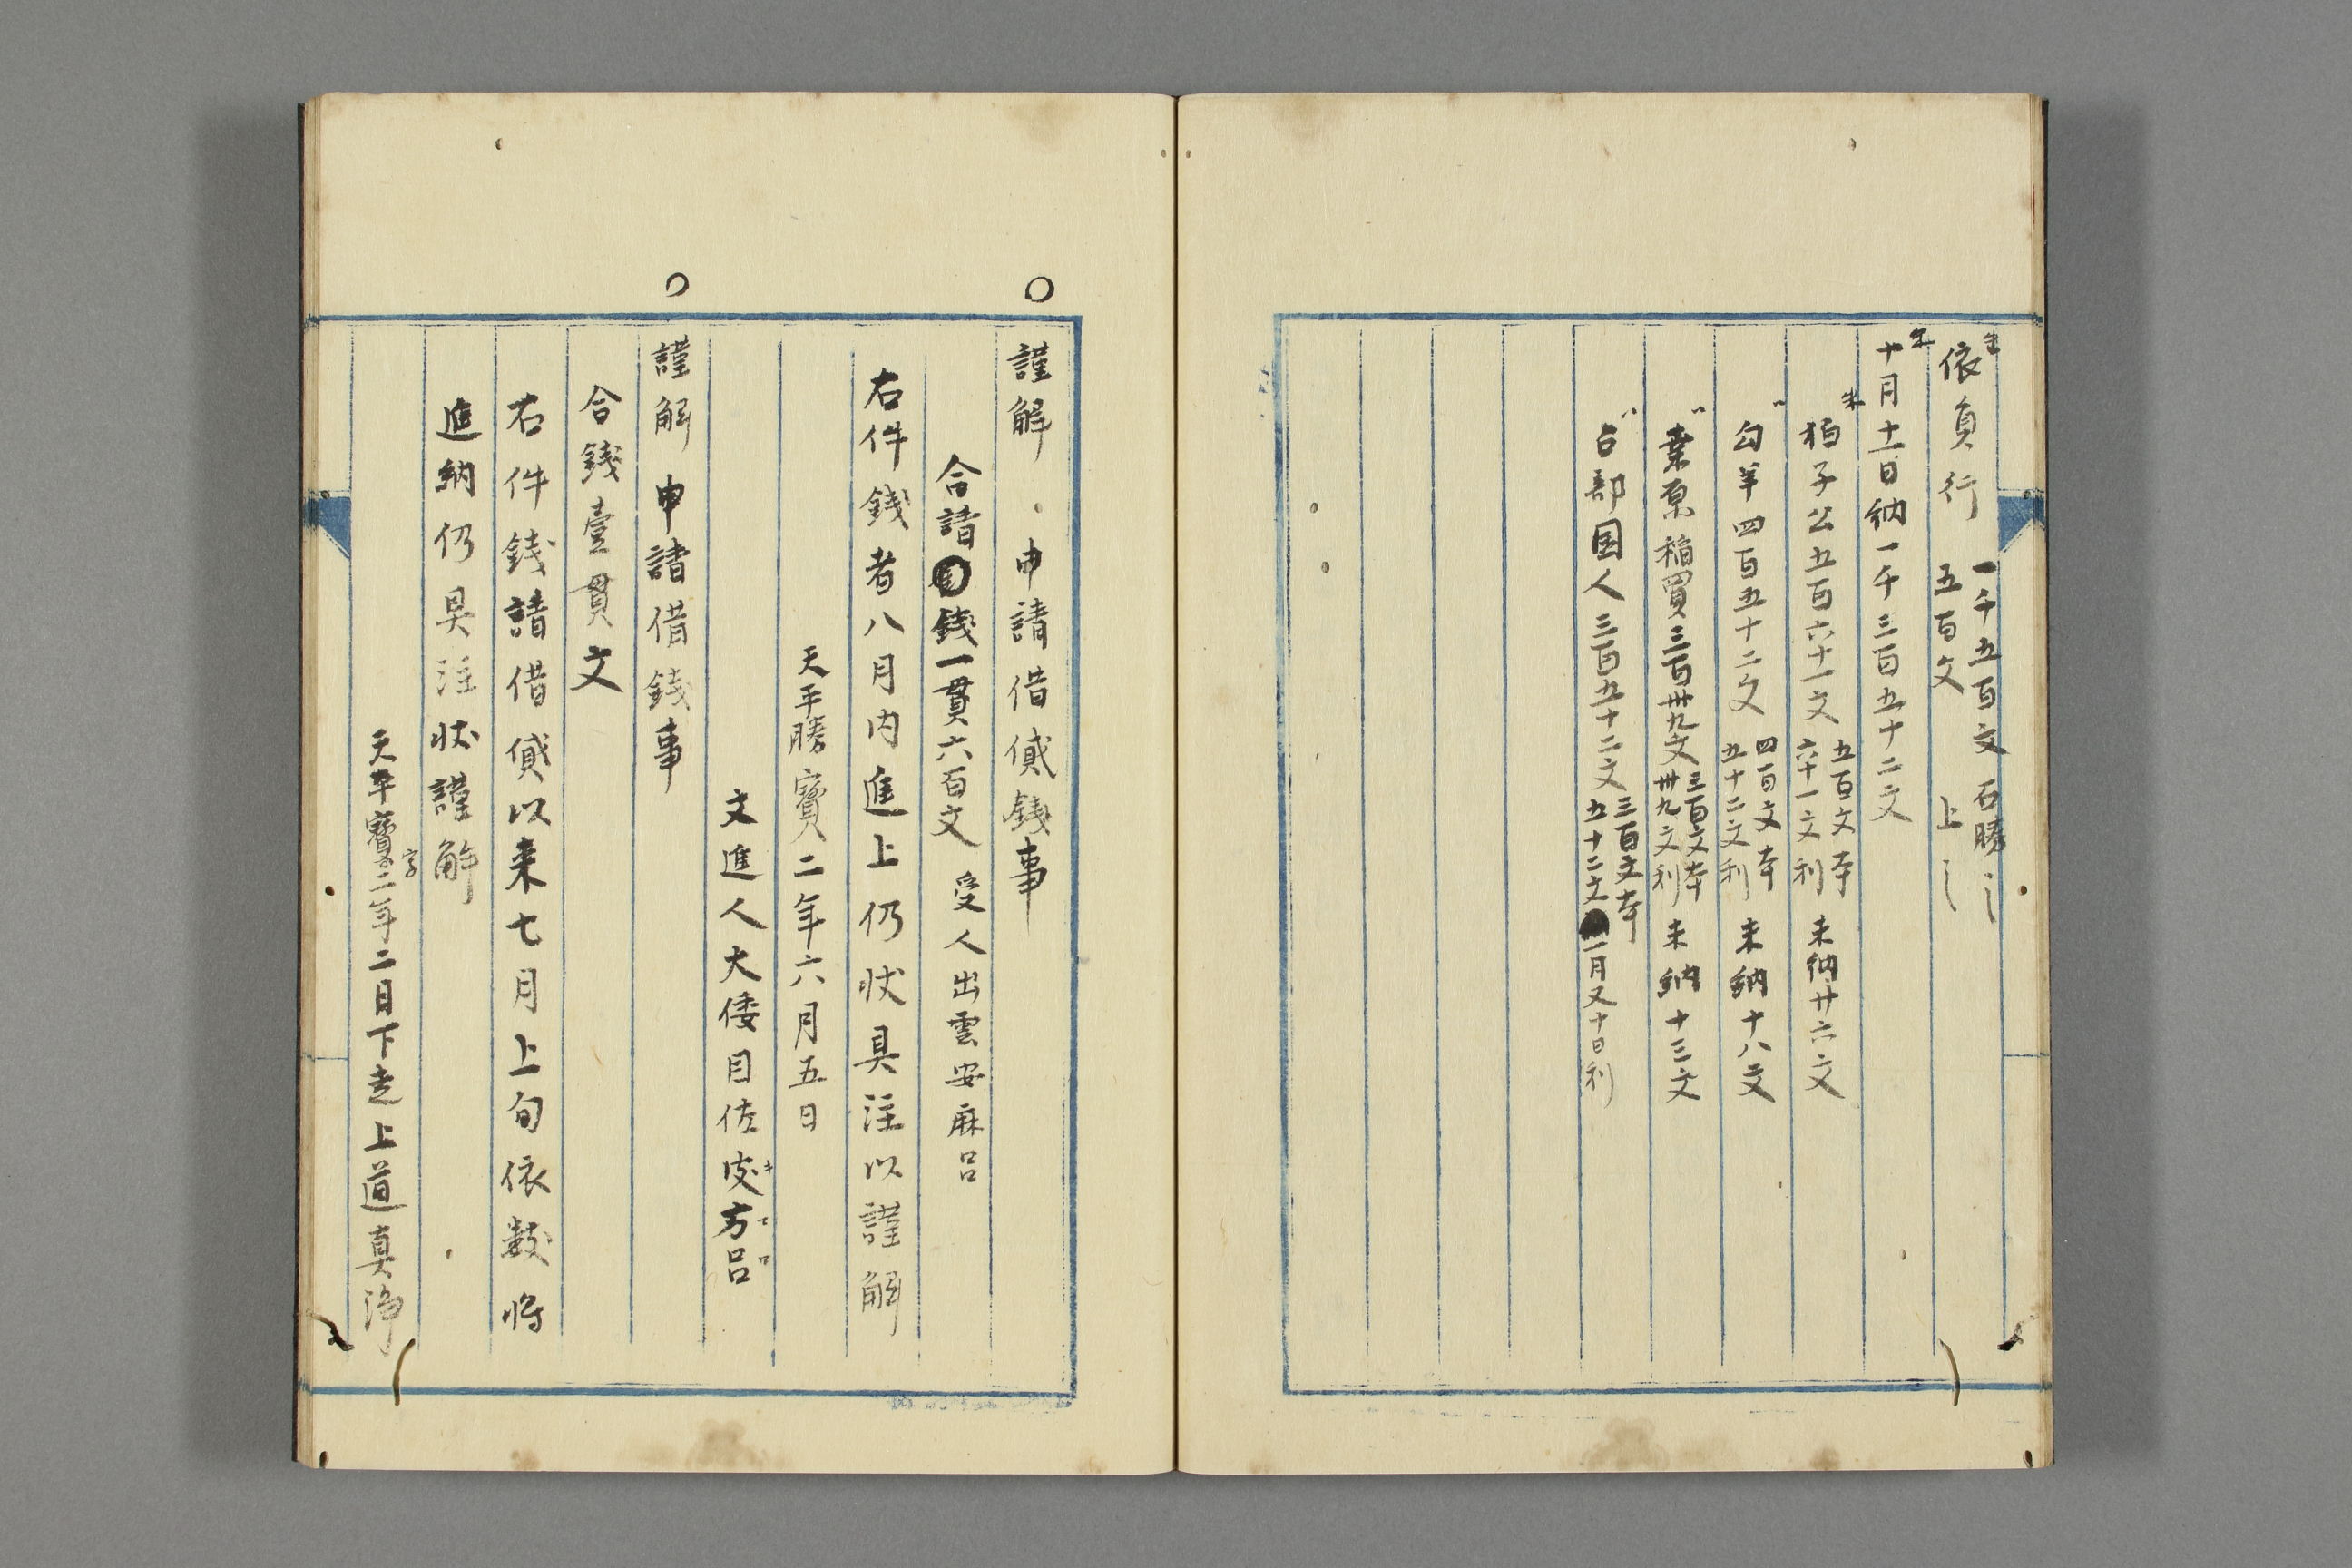 依負行 一千五百文 石勝
五百文 上
十月十一日納一千三百五十二文
狛子公五百六十一文 五百文本 六十一文利 未納廿六文
勾羊四百五十二文 四百文本 五十二文利 未納十八文
桒原稲買三百卅九文 三百文本 卅九文利 未納十三文
占部国人三百五十二文 三百文本 五十二文 一月又十日利
○
謹解 申請借貸銭事
合請 銭一貫六百文 受人出雲安麻呂
右件銭者八月内進上仍状具注以謹解
天平勝寳二年六月五日
文進人大倭目佐皮万呂
○
謹解 申請借銭事
合銭壹貫文
右件銭請借貸以来七月上旬依数将
進納仍具注状謹解
天平寳字二年二月下走上道真浄